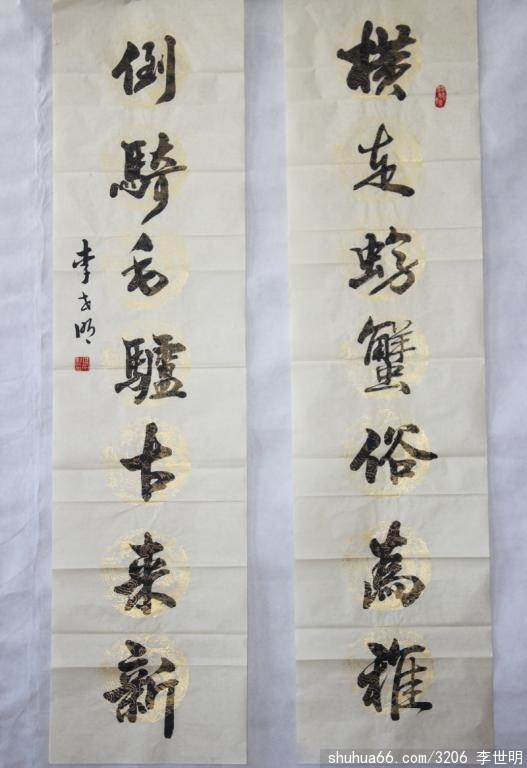 横走螃蟹俗為雅
倒騎毛驢古来新
李世明
shuhua66.com/3206 李世明